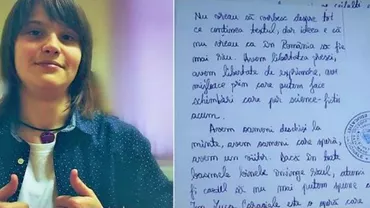 Nu vreau să vorbesc despre tot
ce conținea textul, dar ideea e că
nu vreau ca în România să fie
mai rău. Avem libertatea presei,
avem libertate de exprimare, avem
mijloace prin care putem face
schimbări care par science-fiction
acum.
Avem oameni deschiși la
minte, avem oameni care speră,
avem un viitor. Dacă în toate
basmele binele învinge răul, atunci
fi cazul să nu mai putem spune
Ion Luca Caragiale este o operă care